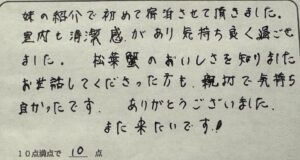 妹の紹介で初めて宿泊させて頂きました。
室内も清潔感があり気持ち良く過ごせ
ました。 松葉蟹のおいしさを知りました
お世話してくださった方も、親切で気持ち
良かったです。 ありがとうございました。
また来たいです!
10点満点で 10 点